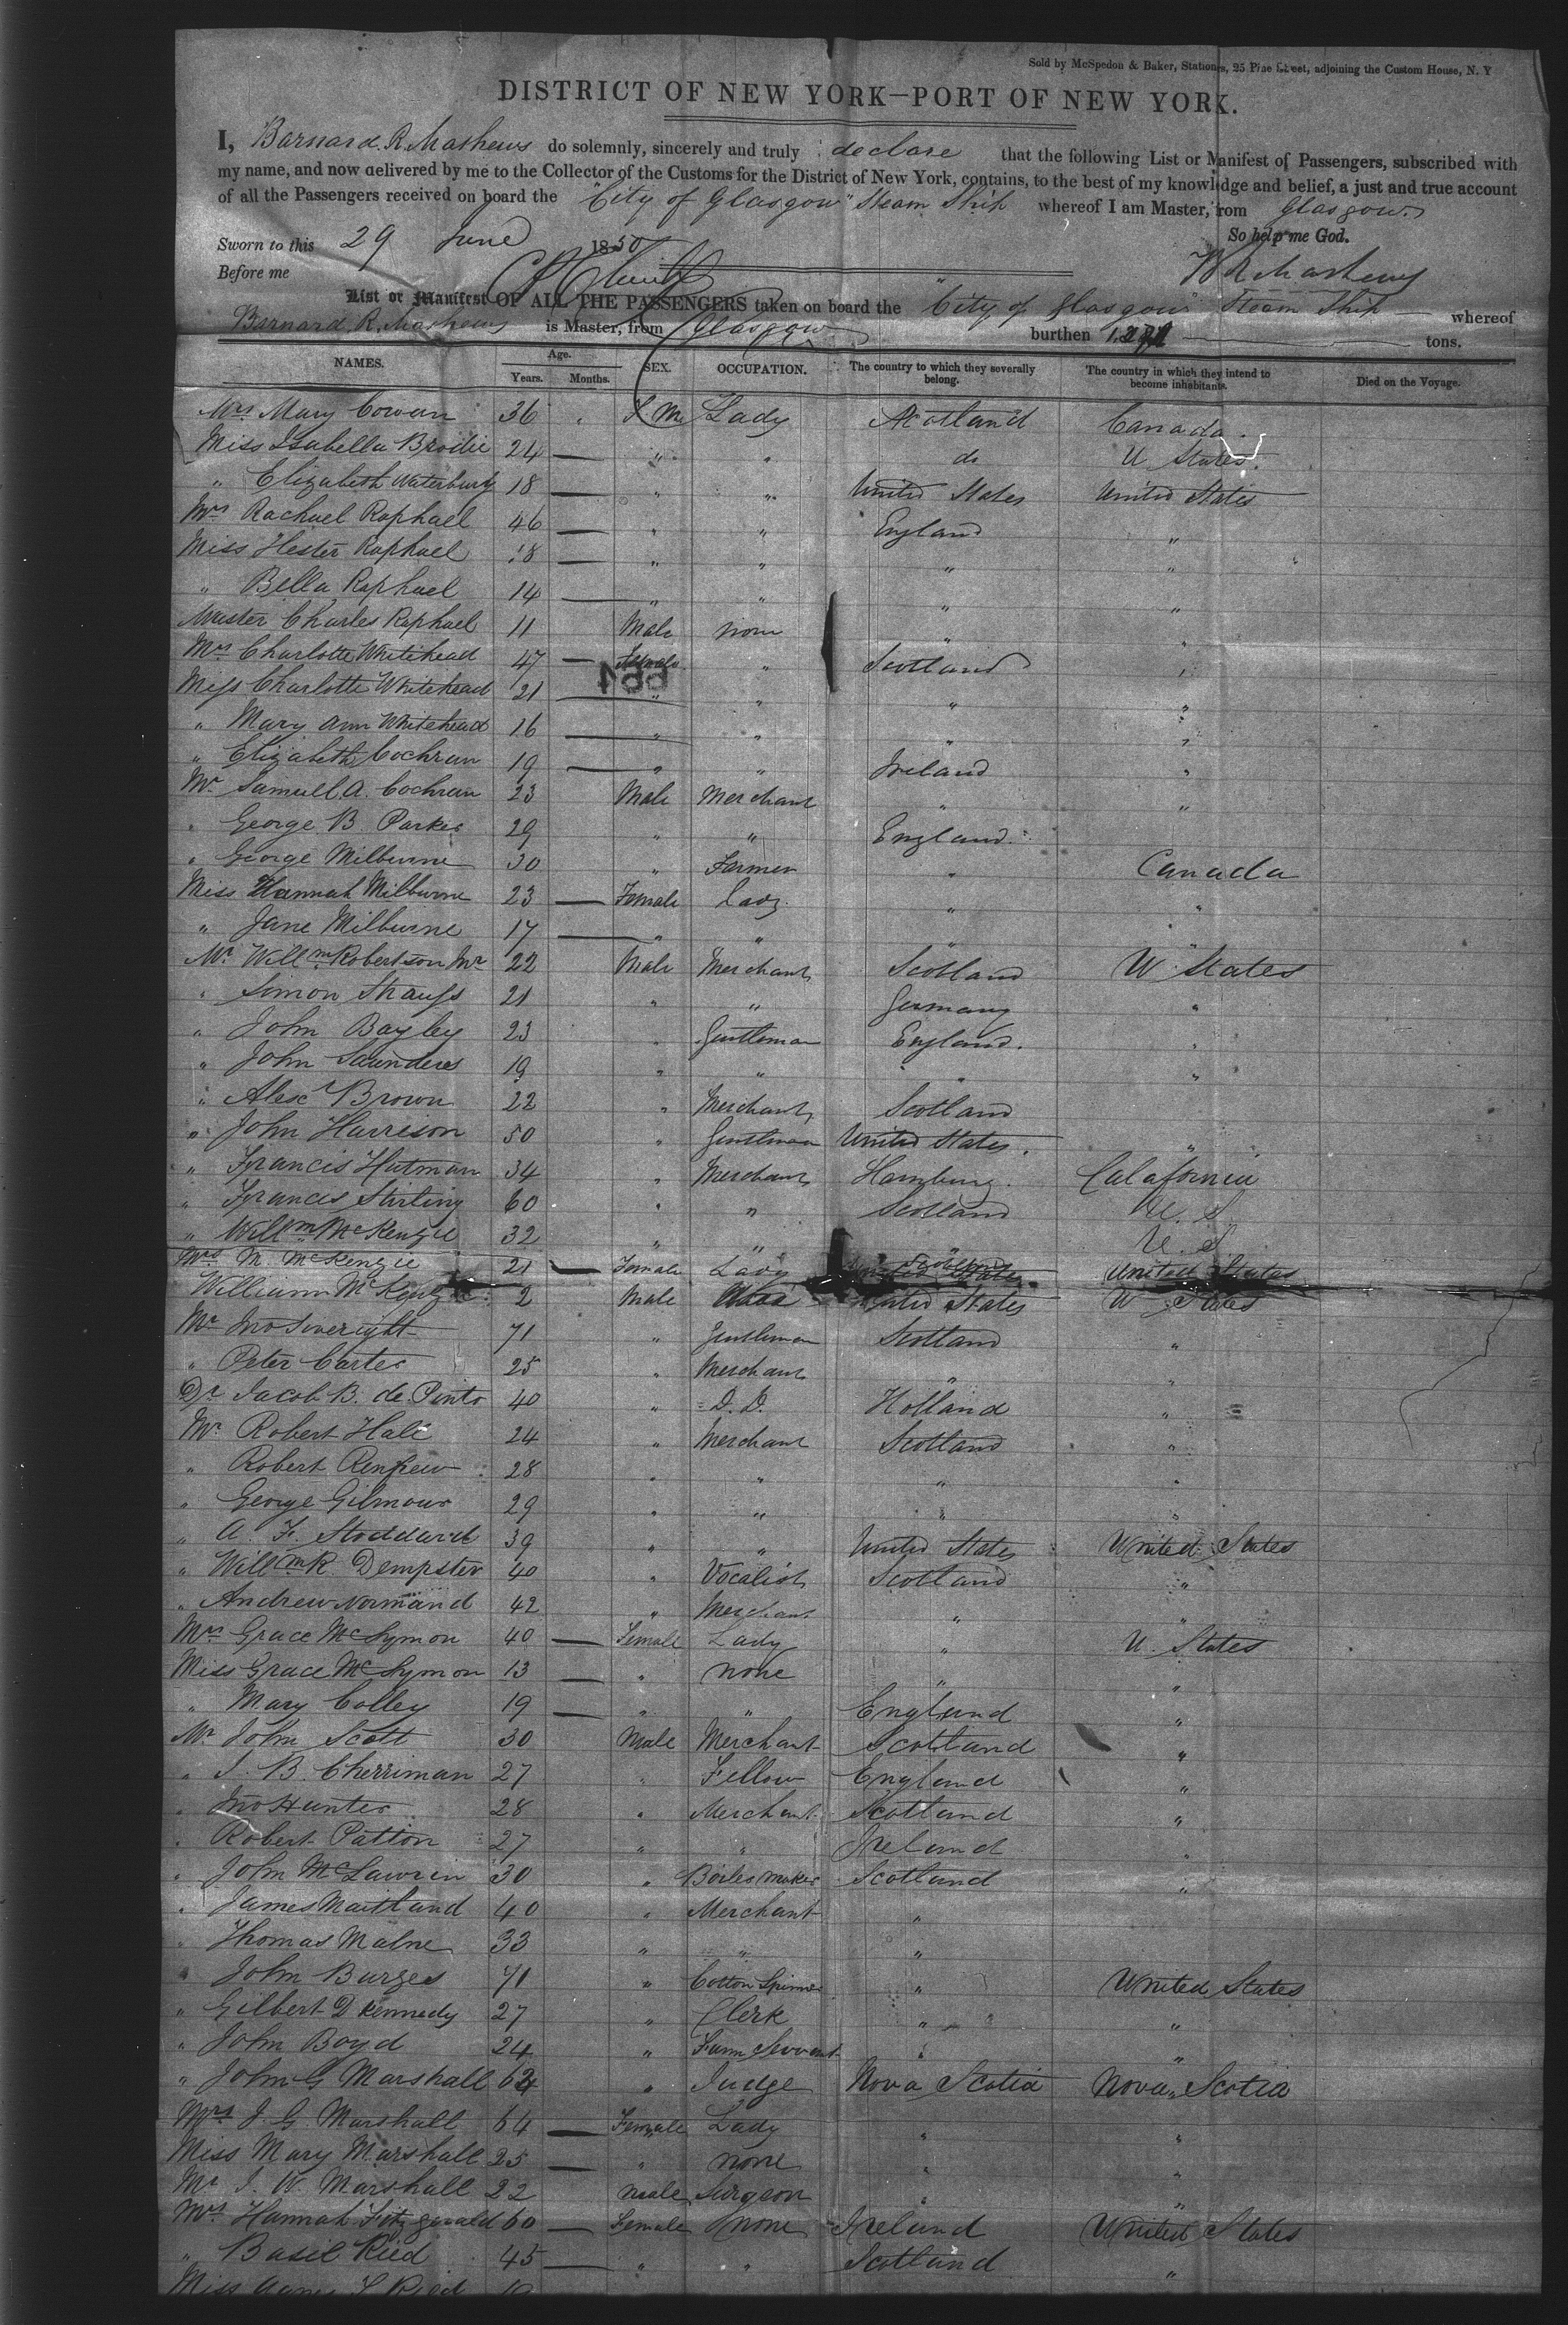 Sold by McSpedon & Baker, Stationers, 25 Pine Street, adjoining the Custom House, N. Y
DISTRICT OF NEW YORK—PORT OF NEW YORK.
I, Barnard. R. Mathews do solemnly, sincerely and truly declare that the following List or Manifest of Passengers, subscribed with
my name, and now delivered by me to the Collector of the Customs for the District of New York, contains, to the best of my knowledge and belief, a just and true account
of all the Passengers received on board the "City of Glasgow" Steam Ship whereof I am Master, from Glasgow.
Sworn to this 29 June 1850 So help me God.
Before me B R Mathews
List or Manifest OF ALL THE PASSENGERS taken on board the "City of Glasgow" Steam Ship whereof
Barnard, R. Mathews is Master, from Glasgow burthen tons.
NAMES. Age. Years. Months. SEX. OCCUPATION. The country to which they severally belong. The country in which they intend to become inhabitants. Died on the Voyage.
Mrs Mary Cowan 36 Lady Scotland Canada.
Miss Isabella Brodie 24 — " " do U States.
" Elizabeth Waterbury 18 — " " United States United States
Mrs Rachael Raphael 46 — " " England "
Miss Hester Raphael 18 — " " " "
" Bella Raphael 14 — " " " "
Master Charles Raphael 11 Male none " "
Mrs Charlotte Whitehead 47 — Female " Scotland "
Miss Charlotte Whitehead 21 — " " " "
" Mary Ann Whitehead 16 — " " " "
" Elizabeth Cochran 19 — " " Ireland "
Mr Samuell A. Cochran 23 Male Merchant " "
" George B. Parker 29 " " England.
" George Milburne 30 " Farmer " Canada
Miss Hannah Milburne 23 — Female Lady " "
" Jane Milburne 17 — " " " "
Mr Willm Robertson 22 Male Merchant Scotland U States
" Simon Strauss 21 " " Germany "
" John Bayley 23 " Gentleman England. "
" John Saunders 19 " " " "
" Alexr Brown 22 " Merchant Scotland
" John Harrison 50 " Gentleman United States. "
" Francis Hutman 34 " Merchant Hamburg. Calafornia
" Francis Stirling 60 " " Scotland U. S
" Willm McKenzie 32 " " " U. S
Mrs M. McKenzie 21 — Female Lady Scotland United States
William McKenzie 2 Male United States U States
Mr Jno Siveright 71 " Gentleman Scotland "
" Peter Carter 25 " Merchant " "
Dr Jacob B. de Pinto 40 " D. D. Holland "
Mr Robert Hale 24 " Merchant Scotland "
" Robert Renfrew 28 " " " "
" George Gilmour 29 " " " "
" A. F. Stoddard 39 " " United States United States
" Willm R Dempster 40 " Vocalist Scotland "
" Andrew Normand 42 " Merchant " "
Mrs Grace McSymon 40 — Female Lady " U. States
Miss Grace McSymon 13 — " none " "
" Mary Colley 19 — " " England "
Mr John Scott 30 Male Merchant Scotland "
" J. B. Cherriman 27 " Fellow England "
" Jno Hunter 28 " Merchant Scotland "
" Robert Patton 27 " " Ireland "
" John McLawrin 30 " Boiler maker Scotland "
" James Maitland 40 " Merchant "
" Thomas Malne 33 " " "
" John Burges 71 " Cotton Spinner " United States
" Gilbert D Kennedy 27 " Clerk " "
" John Boyd 24 " Farm Servant " "
" John G Marshall 64 " Judge Nova Scotia Nova Scotia
Mrs J. G. Marshall 64 — Female Lady " "
Miss Mary Marshall 25 — " none " "
Mr J. W. Marshall 22 male Surgeon " "
Mrs Hannah Fitzgerald 60 — Female none Ireland United States
" Basil Ried 45 — " " Scotland "
Miss